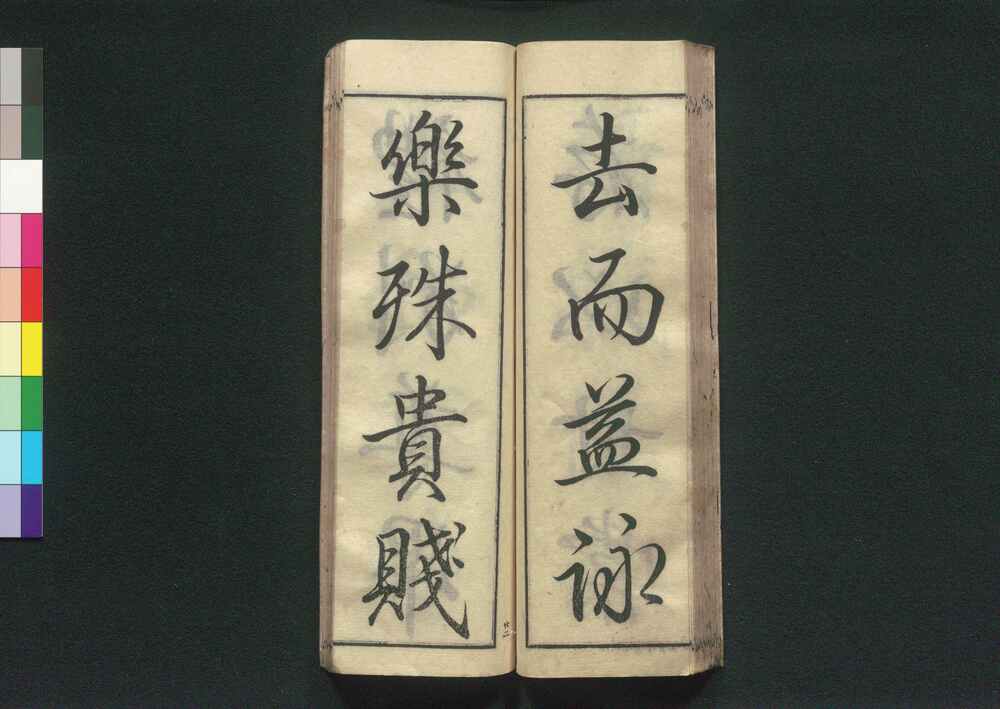 去而益詠
樂殊貴賤
廿二